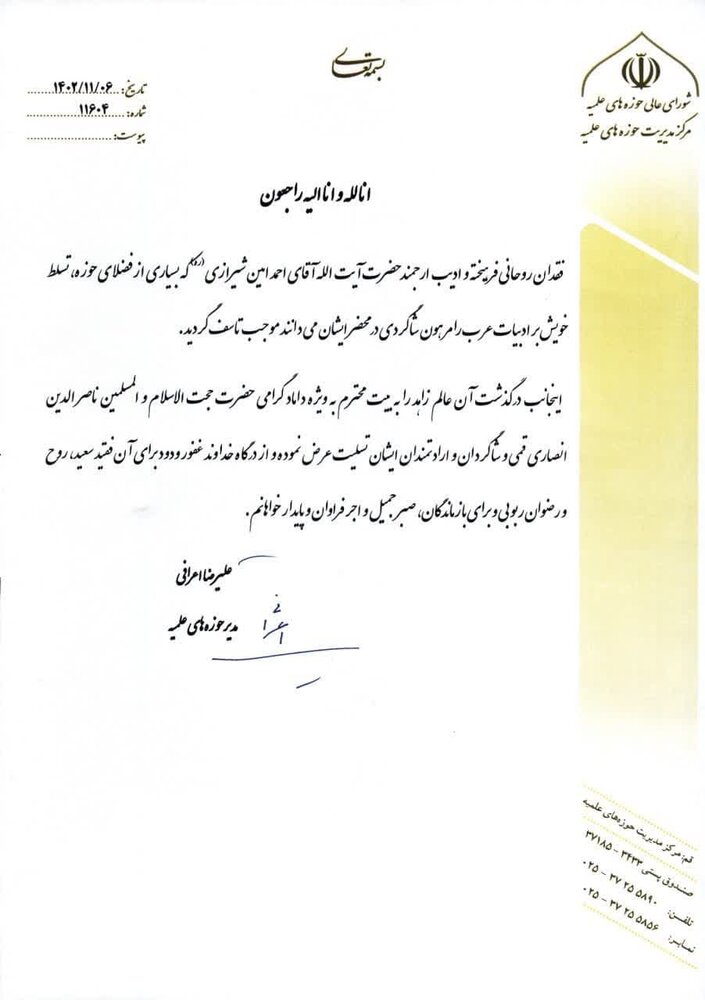 بسمه تعالی
شورای عالی حوزه های علمیه
مرکز مدیریت حوزه های علمیه
تاریخ: ۱۴۰۲/۱۱/۰۶
شماره: ۱۱۶۰۴
پیوست:
انا لله و انا الیه راجعون
فقدان روحانی فرهیخته و ادیب ارجمند حضرت آیت الله آقای احمد امین شیرازی (ره) که بسیاری از فضلای حوزه، تسلط
خویش بر ادبیات عرب را مرهون شاگردی در محضر ایشان می دانند موجب تاسف گردید.
اینجانب درگذشت آن عالم زاهد را به بیت محترم به ویژه داماد گرامی حضرت حجت الاسلام و المسلمین ناصرالدین
انصاری قمی و شاگردان و ارادتمندان ایشان تسلیت عرض نموده و از درگاه خداوند غفور ودود برای آن فقید سعید، روح
و رضوان ربوبی و برای بازماندگان، صبر جمیل و اجر فراوان و پایدار خواهانم.
علیرضا اعرافی
مدیر حوزه های علمیه
قم: مرکز مدیریت حوزه‌های علمیه
صندوق پستی ۳۴۳۳ - ۳۷۱۸۵
تلفن: ۳۷ ۲۵ ۵۸۹۰ - ۰۲۵
نمابر: ۳۷ ۲۵ ۵۸۵۶ - ۰۲۵